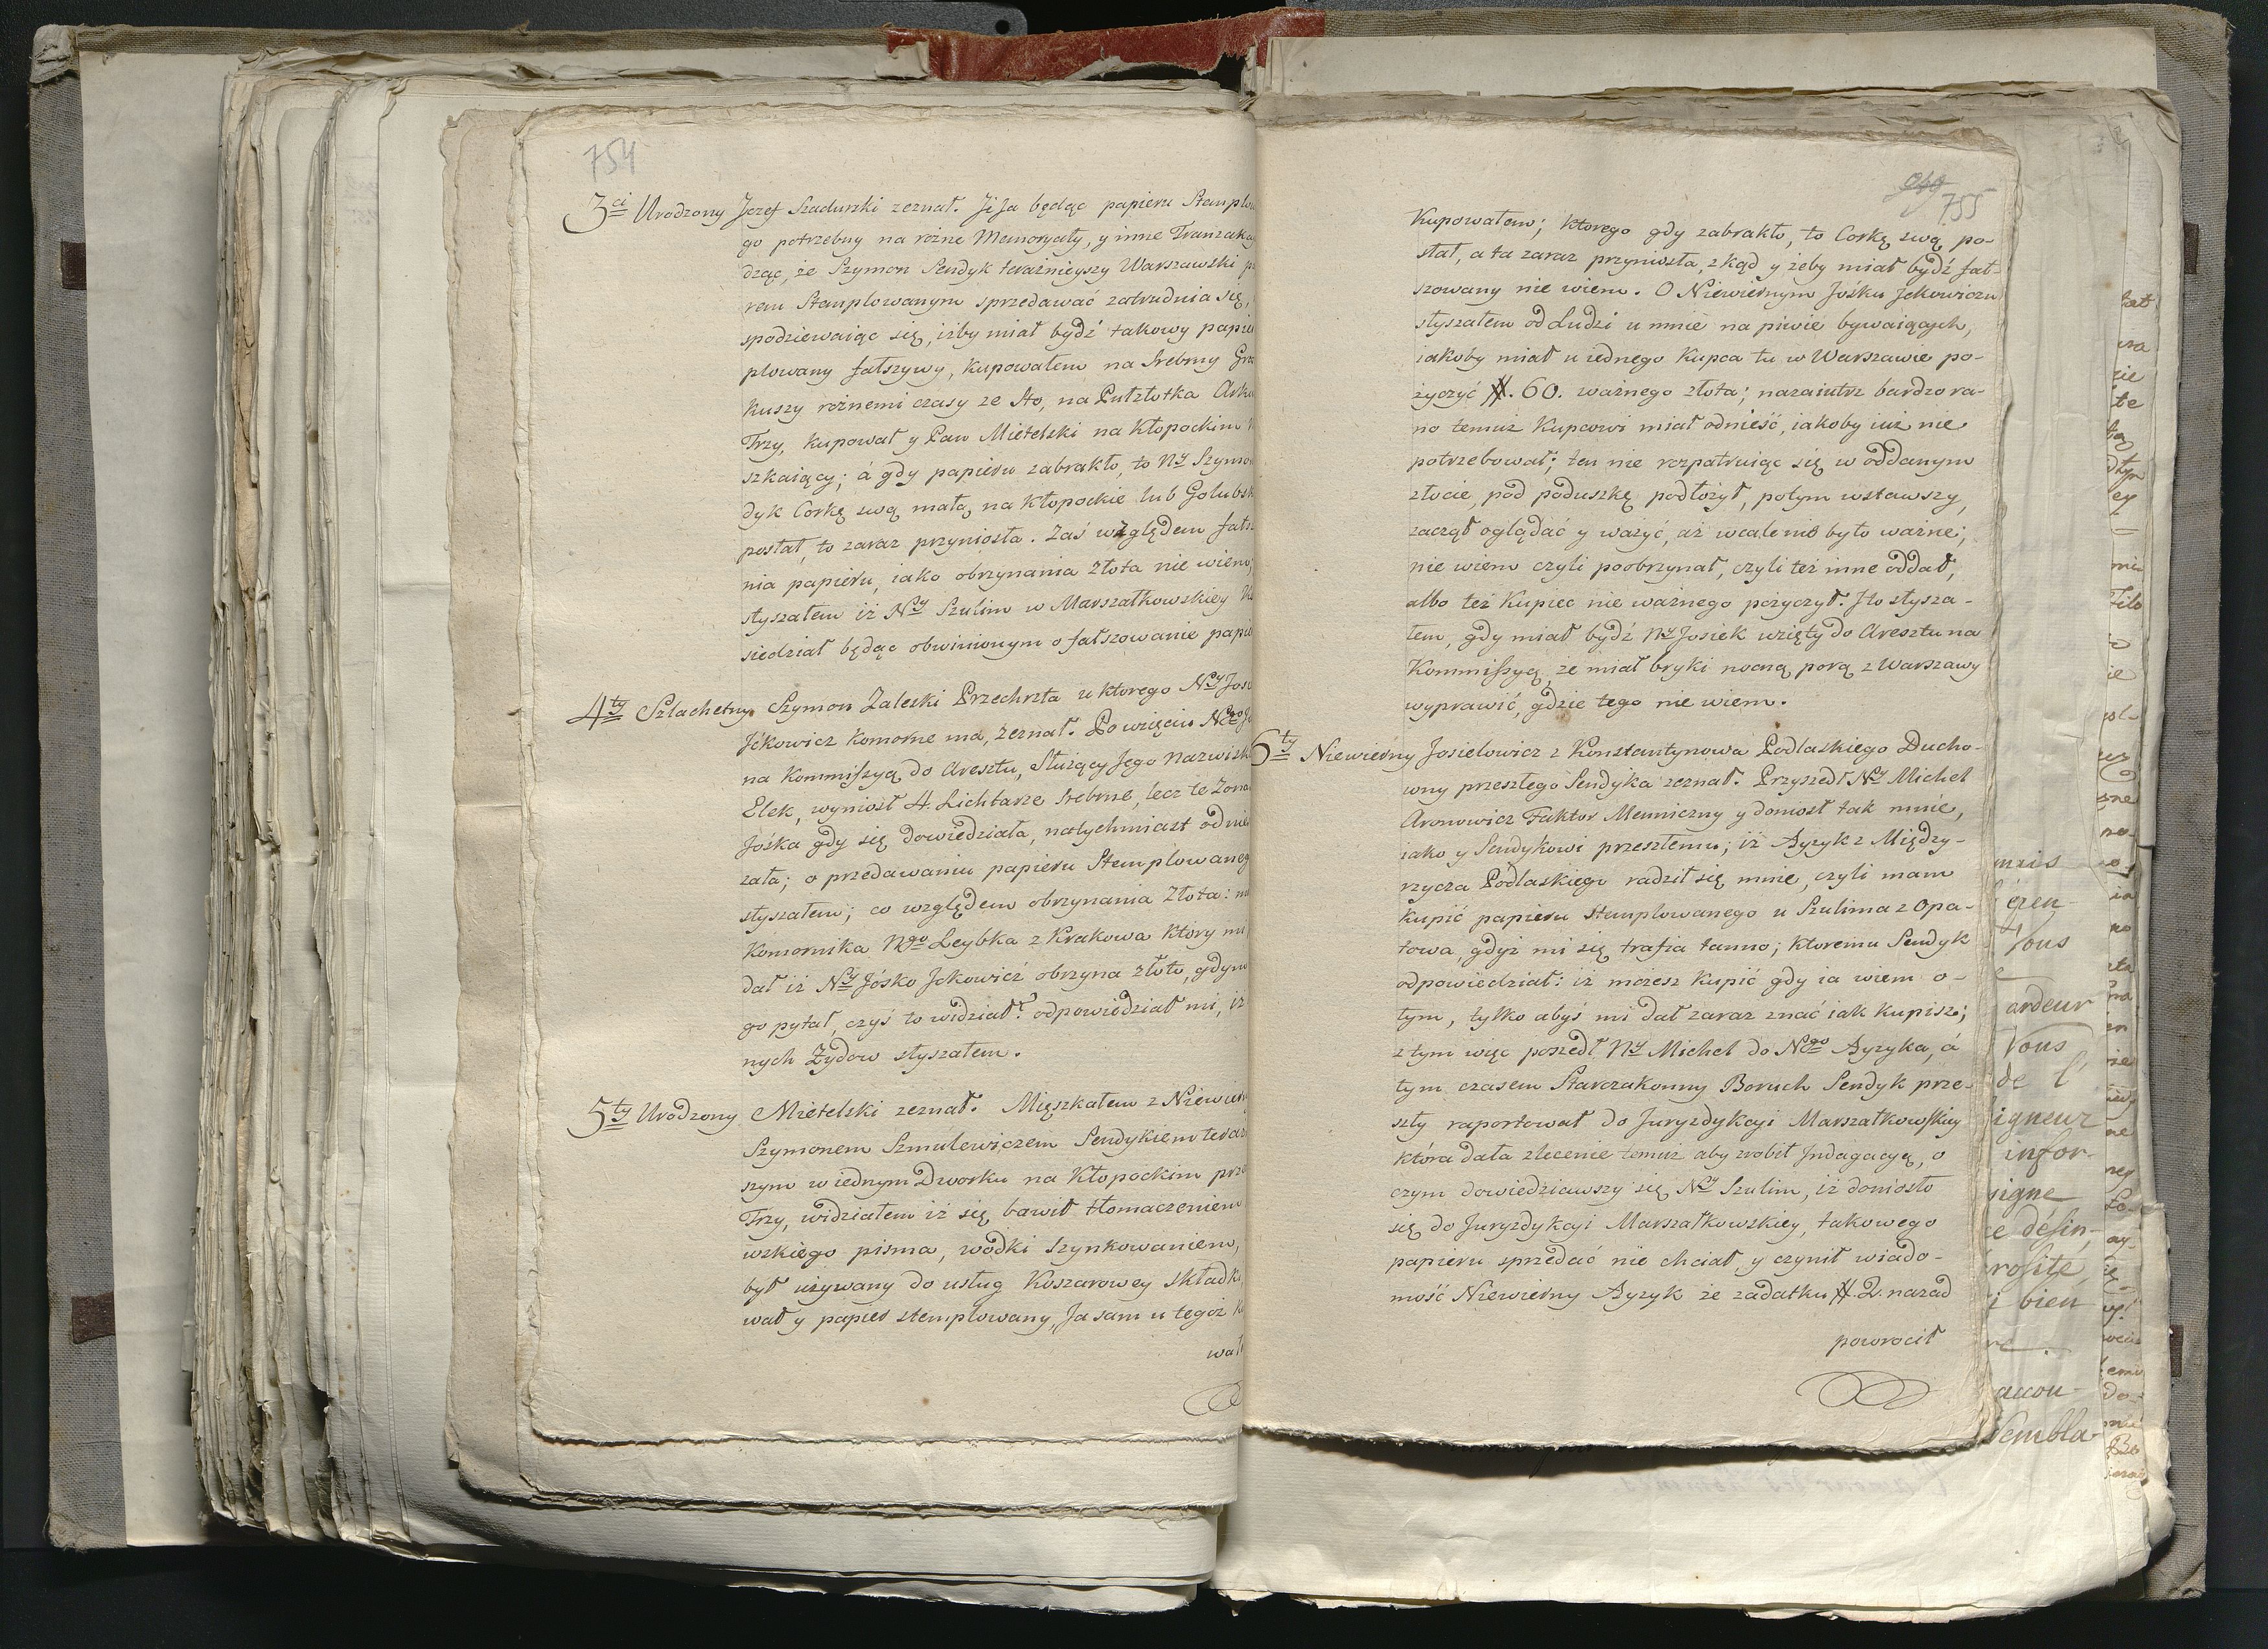 754
3ci Urodzony Jozef Szadurski zeznał. Jż Ja będąc papieru Stemplo
go potrzebny na rożne Memoryały, y inne Tranzakcy
dząc, że Szymon Sendyk teraźnieyszy Warszawski p
rem Stemplowanym sprzedawać zatrudnia się,
spodziewaiąc się, iżby miał bydź takowy papie
plowany fałszywy, kupowałem na Srebrny Gro
kuszy rożnemi czasy ze sto, na Pułzłotka Arku
Trzy, kupował y Pan Mietelski na Kłopockim
szkaiący; á gdy papieru zabrakło, to Ny Szymo
dyk Corkę swą małą, na Kłopockie lub Golubsk
posłał, to zaraz przyniosła. Zaś względem fałs
nia papieru, iako obrzynania złota nie wiem,
słyszałem iż Ny Szulim w Marszałkowskiey
siedział będąc obwinionym o fałszowanie papie
4ty Szlachetny Szymon Zaleski Przechrzta u ktorego Ny Jos
Jckowicz komorne ma, zeznał. Po wzięciu Ngo J
na Kommissyą do Aresztu, Służący Jego nazwisk
Elek, wyniosł 4. Lichtarze srebrne, lecz te Żona
Jośka gdy się dowiedziała, natychmiast odnie
zała; o przedawaniu papieru Stemplowaneg
słyszałem; co względem obrzynania Złota: m
Komornika Ngo Leybka z Krakowa ktory mi
dał iż Ny Jośko Jckowicz obrzyna złoto, gdym
go pytał, czyś to widział? odpowiedział mi, iż
nych Żydow słyszałem.
5ty Urodzony Mietelski zeznał. Mięszkałem z Niewier
Szymonem Szmulewiczem Sendykiem teraz
szym w iednym Dworku na Kłopockim prze
Trzy, widziałem iż się bawił tłomaczeniem
wskiego pisma, wodki szynkowaniem,
był używany do usług Koszarowey składki,
wał y papier stemplowany, Ja sam u tegoż k
wał
755
Kupowałem; ktorego gdy zabrakło, to Corkę swą po-
słał, a ta zaraz przyniosła, z kąd y żeby miał bydź fał-
szowany nie wiem. O Niewiernym Jośku Jckowiczu
słyszałem od Ludzi u mnie na piwie bywaiących,
iakoby miał u iednego Kupca tu w Warszawie po-
życzyć #. 60. ważnego złota; nazaiutrz bardzo ra-
no temuż Kupcowi miał odnieść, iakoby iuż nie
potrzebował; ten nie rozpatruiąc się w oddanym
złocie, pod poduszkę podłożył, potym wstawszy,
zaczął oglądać y ważyć, aż wcale nie było ważne;
nie wiem czyli poobrzynał, czyli też inne oddał,
albo też Kupiec nie ważnego pożyczył. J to słysza-
łem, gdy miał bydź Ny Josiek wzięty do Aresztu na
Kommissyą, że miał bryki nocną porą z Warszawy
wyprawić, gdzie tego nie wiem.
6ty Niewierny Josielowicz z Konstantynowa Podlaskiego Ducho-
wny przeszłego Sendyka zeznał. Przyszedł Ny Michel
Aronowicz Faktor Menniczny y doniosł tak mnie,
iako y Sendykowi przeszłemu; iż Ayzyk z Między-
rzycza Podlaskiego radził się mnie, czyli mam
kupić papieru stemplowanego u Szulima z Opa-
towa, gdyż mi się trafia tanno; ktoremu Sendyk
odpowiedział: iż możesz kupić gdy ia wiem o-
tym, tylko abyś mi dał zaraz znać iak kupisz;
z tym więc poszedł Ny Michel do Ngo Ayzyka, á
tym czasem Starozakonny Boruch Sendyk prze-
szły raportował do Juryzdykcyi Marszałkowskiey
która dała zlecenie temuż aby zrobił Jndagacyę, o
czym dowiedziawszy się Ny Szulim, iż doniosło
się do Juryzdykcyi Marszałkowskiey, takowego
papieru sprzedać nie chciał, y czynił wiado-
mość Niewierny Ayzyk że zadatku #. 2. nazad
powrocił
ardeur
Vous
de l'
igneur
infor-
signe
bien